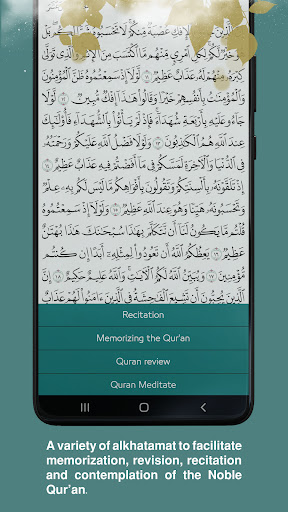 بِٱلْإِفْكِ عُصْبَةٌ مِّنكُمْ لَا تَحْسَبُوهُ شَرًّا لَّكُم بَلْ
هُوَ خَيْرٌ لَّكُمْ لِكُلِّ ٱمْرِئٍ مِّنْهُم مَّا ٱكْتَسَبَ مِنَ ٱلْإِثْمِ وَٱلَّذِى تَوَلَّىٰ
كِبْرَهُۥ مِنْهُمْ لَهُۥ عَذَابٌ عَظِيمٌ ١١ لَّوْلَآ إِذْ سَمِعْتُمُوهُ ظَنَّ ٱلْمُؤْمِنُونَ
وَٱلْمُؤْمِنَٰتُ بِأَنفُسِهِمْ خَيْرًا وَقَالُوا۟ هَٰذَآ إِفْكٌ مُّبِينٌ ١٢ لَّوْلَا
جَآءُو عَلَيْهِ بِأَرْبَعَةِ شُهَدَآءَ فَإِذْ لَمْ يَأْتُوا۟ بِٱلشُّهَدَآءِ فَأُو۟لَٰٓئِكَ
عِندَ ٱللَّهِ هُمُ ٱلْكَٰذِبُونَ ١٣ وَلَوْلَا فَضْلُ ٱللَّهِ عَلَيْكُمْ وَرَحْمَتُهُۥ
فِى ٱلدُّنْيَا وَٱلْءَاخِرَةِ لَمَسَّكُمْ فِى مَآ أَفَضْتُمْ فِيهِ عَذَابٌ عَظِيمٌ ١٤
إِذْ تَلَقَّوْنَهُۥ بِأَلْسِنَتِكُمْ وَتَقُولُونَ بِأَفْوَاهِكُم مَّا لَيْسَ لَكُم بِهِۦ عِلْمٌ
وَتَحْسَبُونَهُۥ هَيِّنًا وَهُوَ عِندَ ٱللَّهِ عَظِيمٌ ١٥ وَلَوْلَآ إِذْ سَمِعْتُمُوهُ
قُلْتُم مَّا يَكُونُ لَنَآ أَن نَّتَكَلَّمَ بِهَٰذَا سُبْحَٰنَكَ هَٰذَا بُهْتَٰنٌ
عَظِيمٌ ١٦ يَعِظُكُمُ ٱللَّهُ أَن تَعُودُوا۟ لِمِثْلِهِۦٓ أَبَدًا إِن كُنتُم
مُّؤْمِنِينَ ١٧ وَيُبَيِّنُ ٱللَّهُ لَكُمُ ٱلْءَايَٰتِ وَٱللَّهُ عَلِيمٌ حَكِيمٌ ١٨ إِنَّ
ٱلَّذِينَ يُحِبُّونَ أَن تَشِيعَ ٱلْفَٰحِشَةُ فِى ٱلَّذِينَ ءَامَنُوا۟ لَهُمْ عَذَابٌ
Recitation
Memorizing the Qur'an
Quran review
Quran Meditate
A variety of alkhatamat to facilitate
memorization, revision, recitation
and contemplation of the Noble
Qur'an.